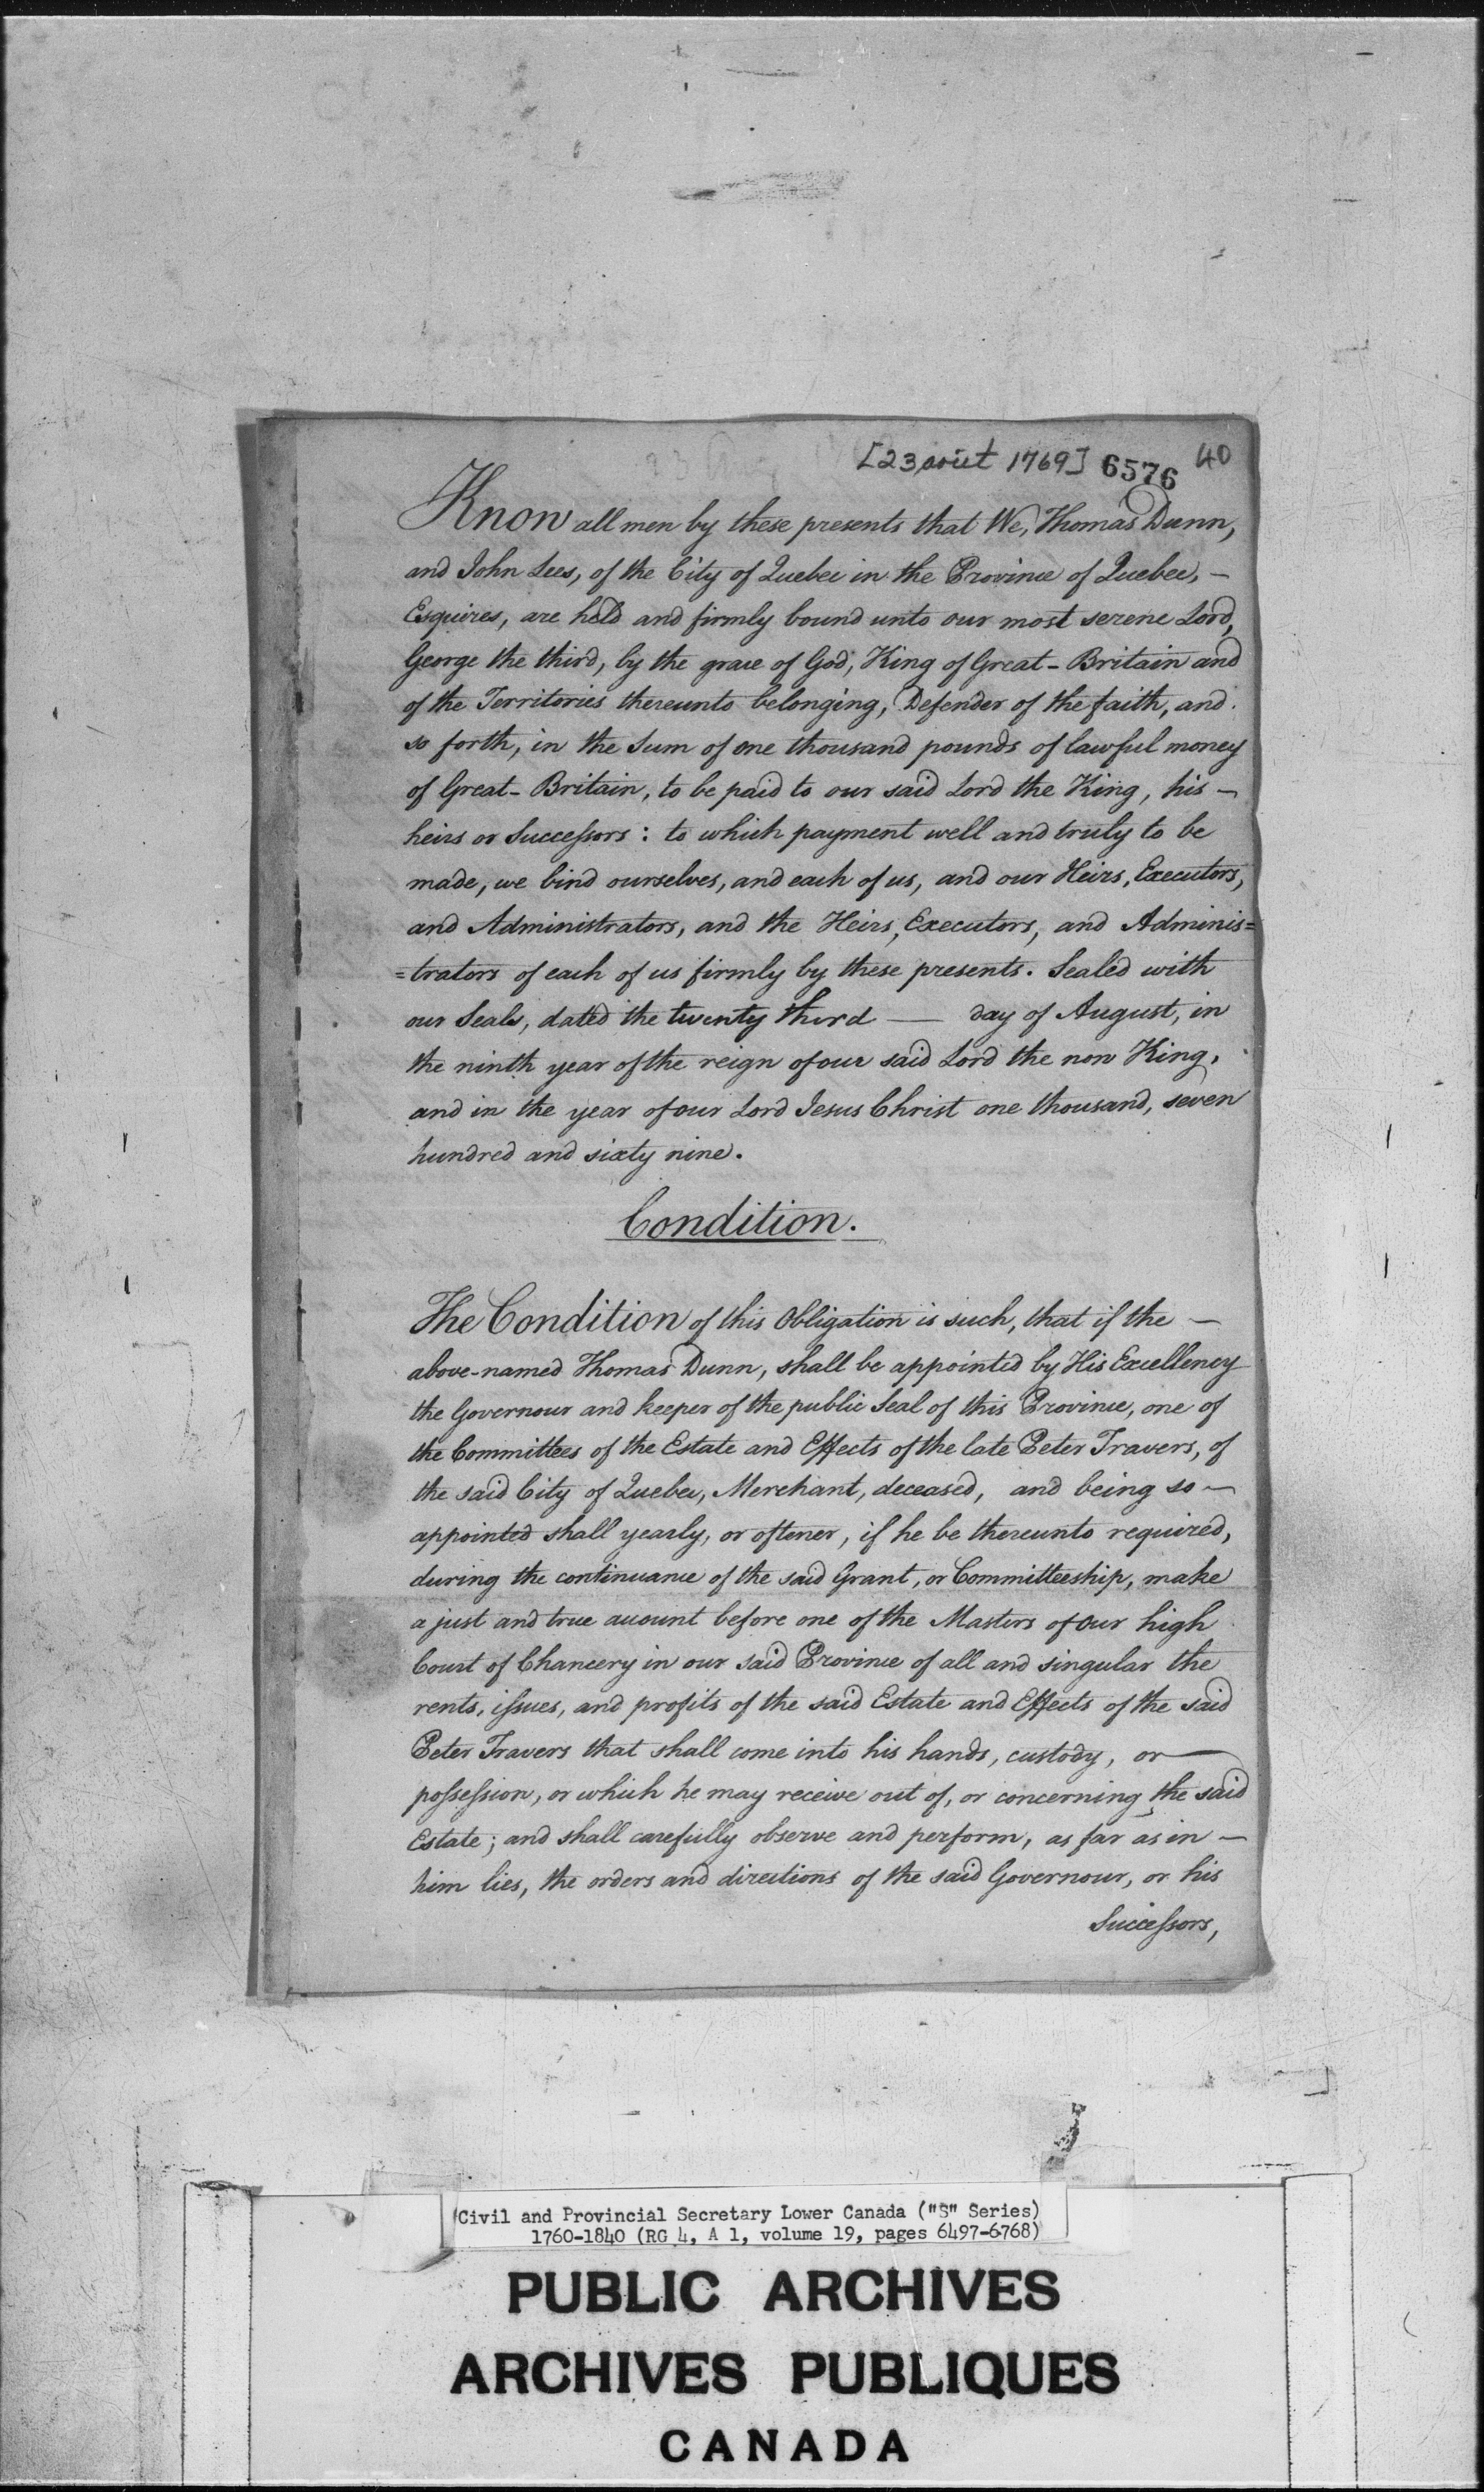 [23 août 1769] 6576 40
Know all men by these presents that We, Thomas Dunn,
and John Lees, of the City of Quebec in the Province of Quebec, —
Esquires, are held and firmly bound unto our most serene Lord,
George the third, by the grace of God, King of Great-Britain and
of the Territories thereunto belonging, Defender of the faith, and
so forth, in the Sum of one thousand pounds of lawful money
of Great-Britain, to be paid to our said Lord the King, his —
heirs or Successors: to which payment well and truly to be
made, we bind ourselves, and each of us, and our Heirs, Executors,
and Administrators, and the Heirs, Executors, and Adminis=
=trators of each of us firmly by these presents. Sealed with
our Seals, dated the twenty third — day of August, in
the ninth year of the reign of our said Lord the now King,
and in the year of our Lord Jesus Christ one thousand, seven
hundred and sixty nine.
Condition.
The Condition of this Obligation is such, that if the —
above-named Thomas Dunn, shall be appointed by His Excellency
the Governour and keeper of the public Seal of this Province, one of
the Committees of the Estate and Effects of the late Peter Travers, of
the said City of Quebec, Merchant, deceased, and being so —
appointed shall yearly, or oftener, if he be thereunto required,
during the continuance of the said Grant, or Committeeship, make
a just and true account before one of the Masters of our high
Court of Chancery in our said Province of all and singular the
rents, issues, and profits of the said Estate and Effects of the said
Peter Travers that shall come into his hands, custody, or —
possession, or which he may receive out of, or concerning the said
Estate; and shall carefully observe and perform, as far as in —
him lies, the orders and directions of the said Governour, or his
Successors,
Civil and Provincial Secretary Lower Canada ("S" Series)
1760-1840 (RG 4, A 1, volume 19, pages 6497-6768)
PUBLIC ARCHIVES
ARCHIVES PUBLIQUES
CANADA